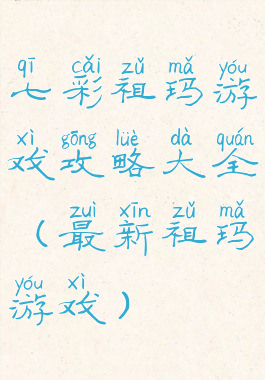 qī cǎi zǔ mǎ yóu
七彩祖玛游
xì gōng lüè dà quán
戏攻略大全
zuì xīn zǔ mǎ
（最新祖玛
yóu xì
游戏）